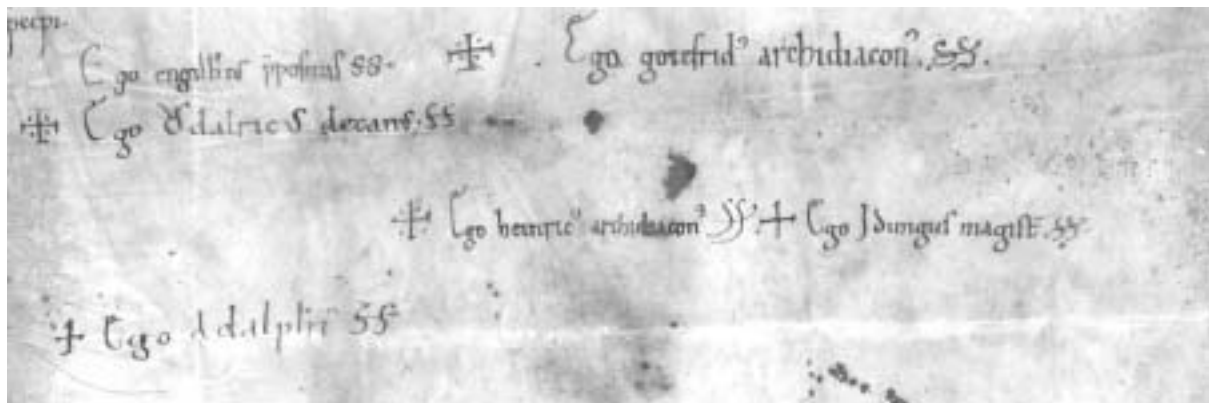 Ego engilbt᷒ p̄positus SS. ✠ . Ego gotefrid᷒ archidiacon᷒. SS.
✠ Ego Ŏdalricus decanus. SS
✠ Ego heinric᷒ archidiacon᷒ SS. ✠ Ego Idungus magist̄. SS
✠ Ego Adalpht̄ SS